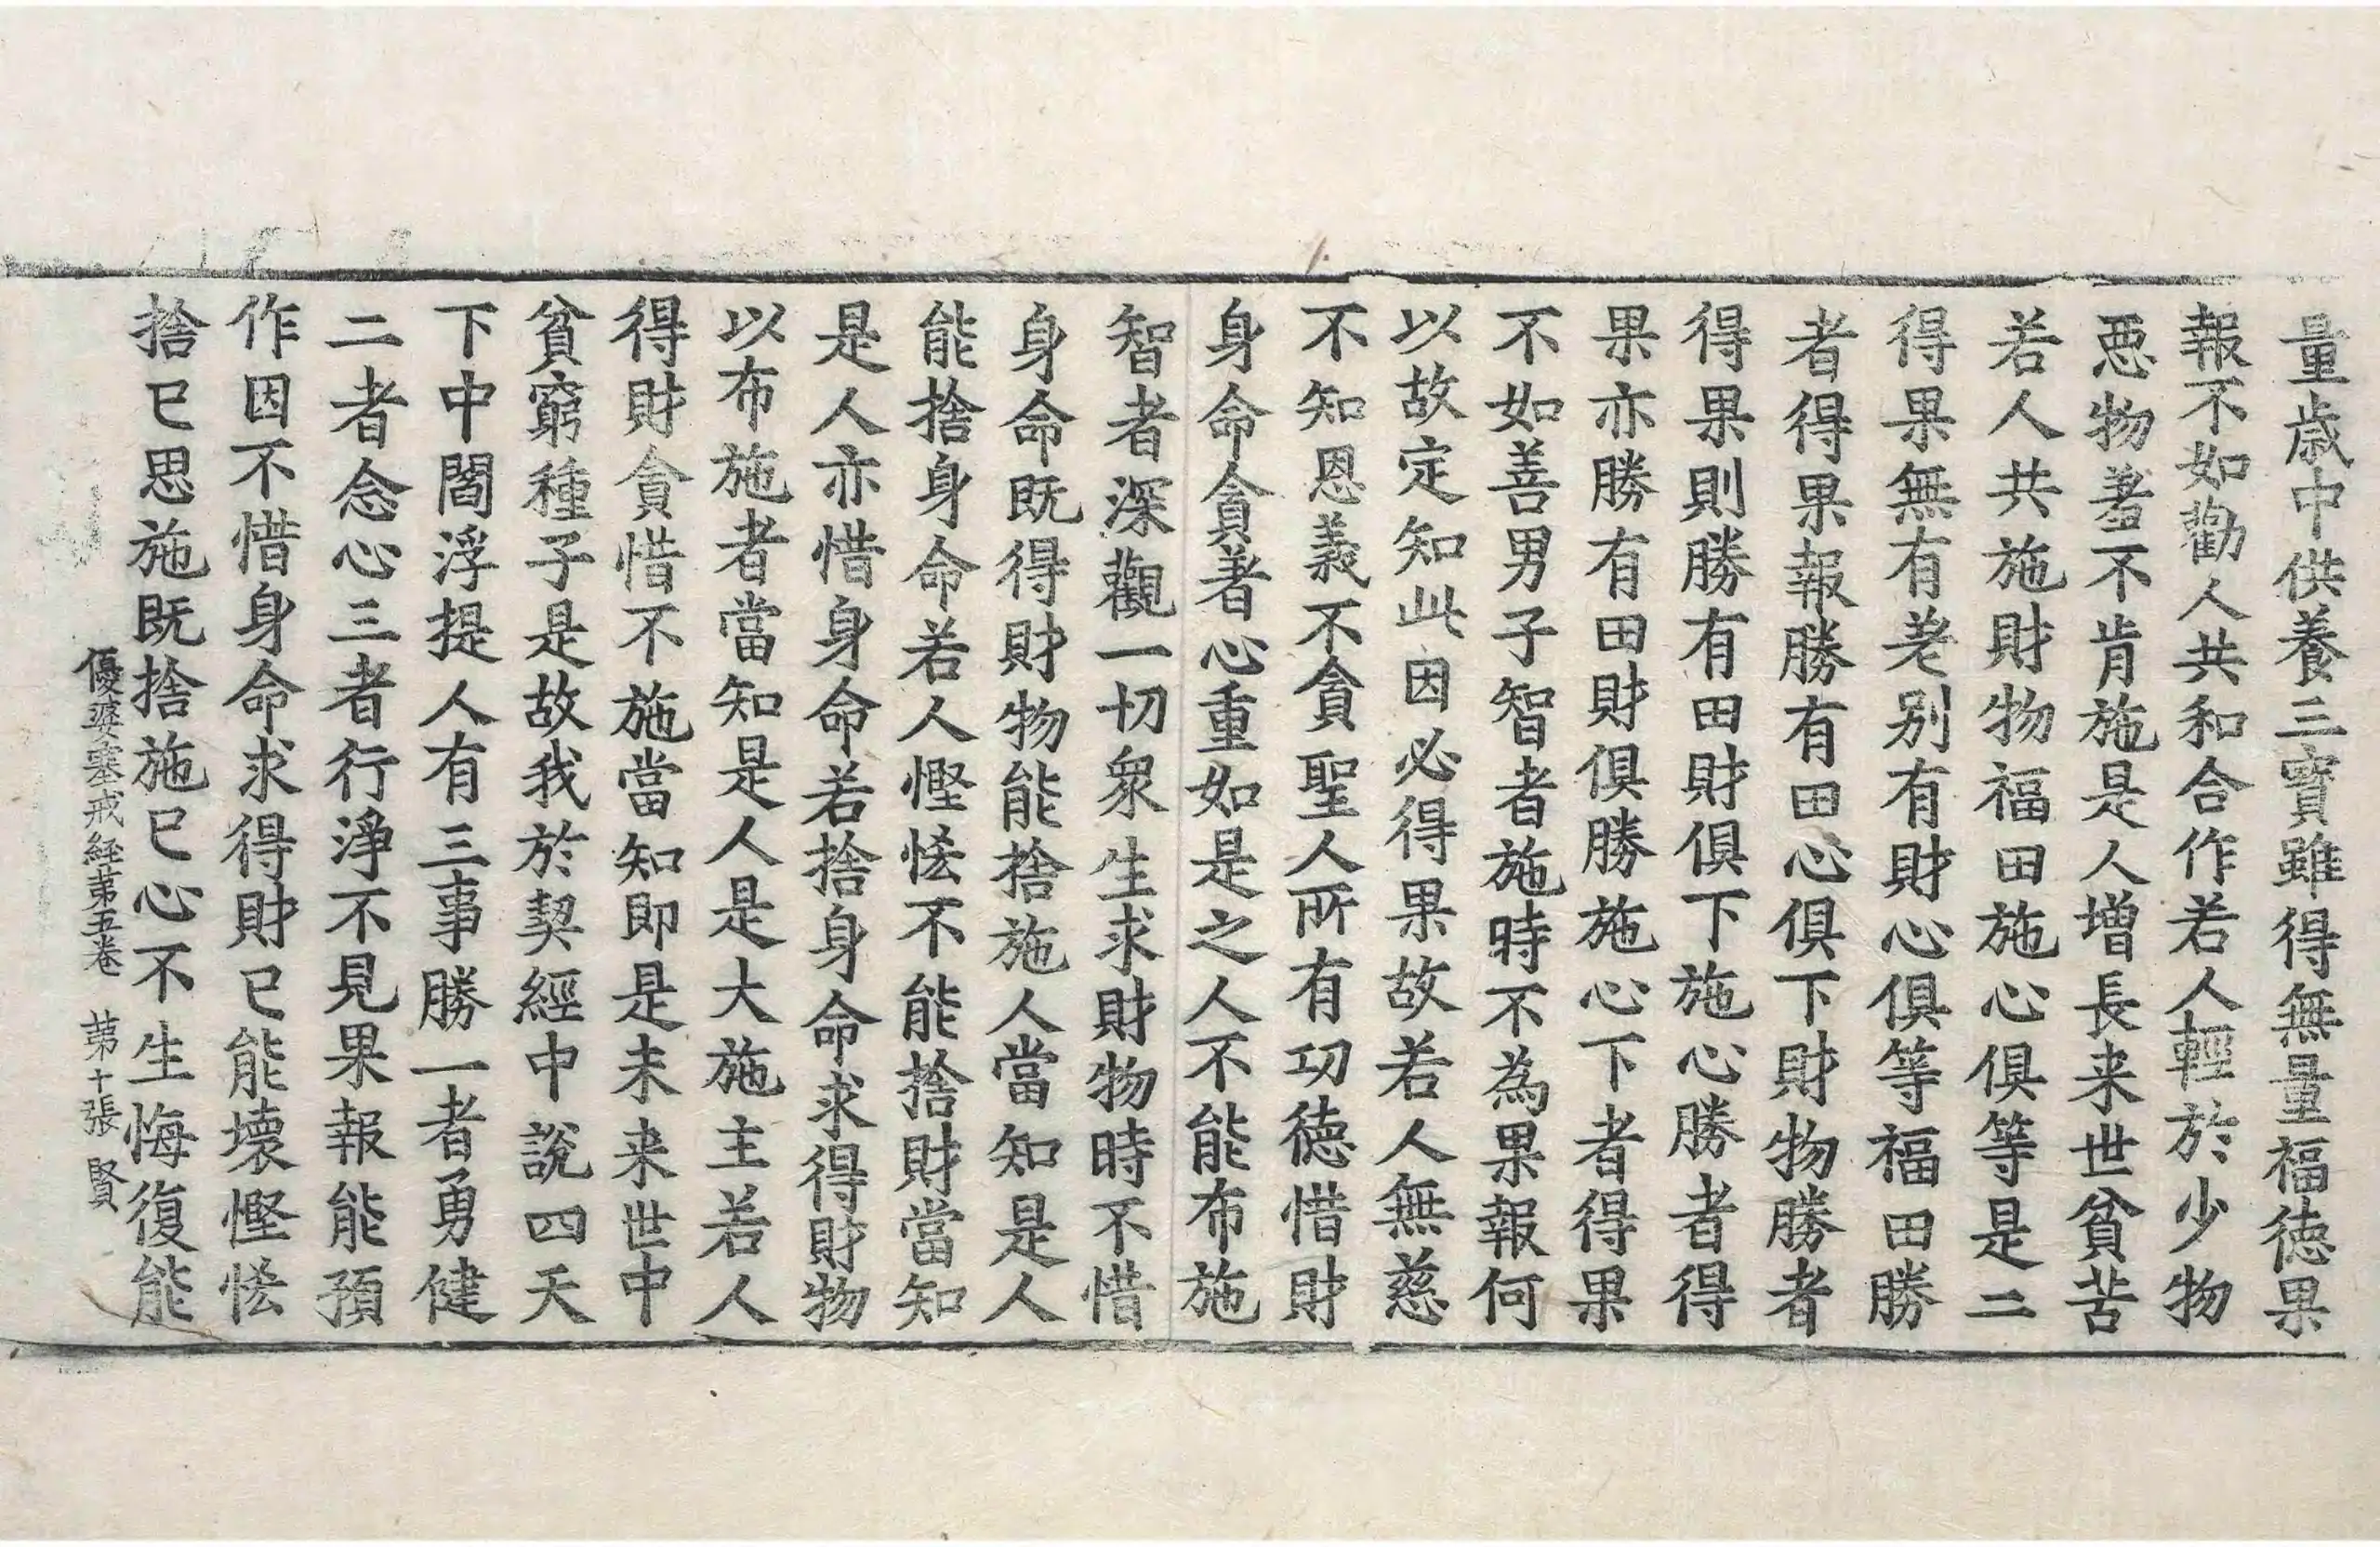 量歳中供養三寶雖得無量福徳果
報不如勸人共和合作若人輕於少物
惡物羞不肯施是人增長来世貧苦
若人共施財物福田施心俱等是二
得果無有差別有財心俱等福田勝
者得果報勝有田心俱下財物勝者
得果則勝有田財俱下施心勝者得
果亦勝有田財俱勝施心下者得果
不如善男子智者施時不為果報何
以故定知此因必得果故若人無慈
不知恩義不貪聖人所有功徳惜財
身命貪著心重如是之人不能布施
智者深觀一切衆生求財物時不惜
身命既得財物能捨施人當知是人
能捨身命若人慳悋不能捨財當知
是人亦惜身命若捨身命求得財物
以布施者當知是人是大施主若人
得財貪惜不施當知即是未来世中
貧窮種子是故我於契經中說四天
下中閻浮提人有三事勝一者勇健
二者念心三者行淨不見果報能預
作因不惜身命求得財已能壞慳悋
捨已思施既捨施已心不生悔復能
優婆塞戒経苐五卷 苐十張 賢